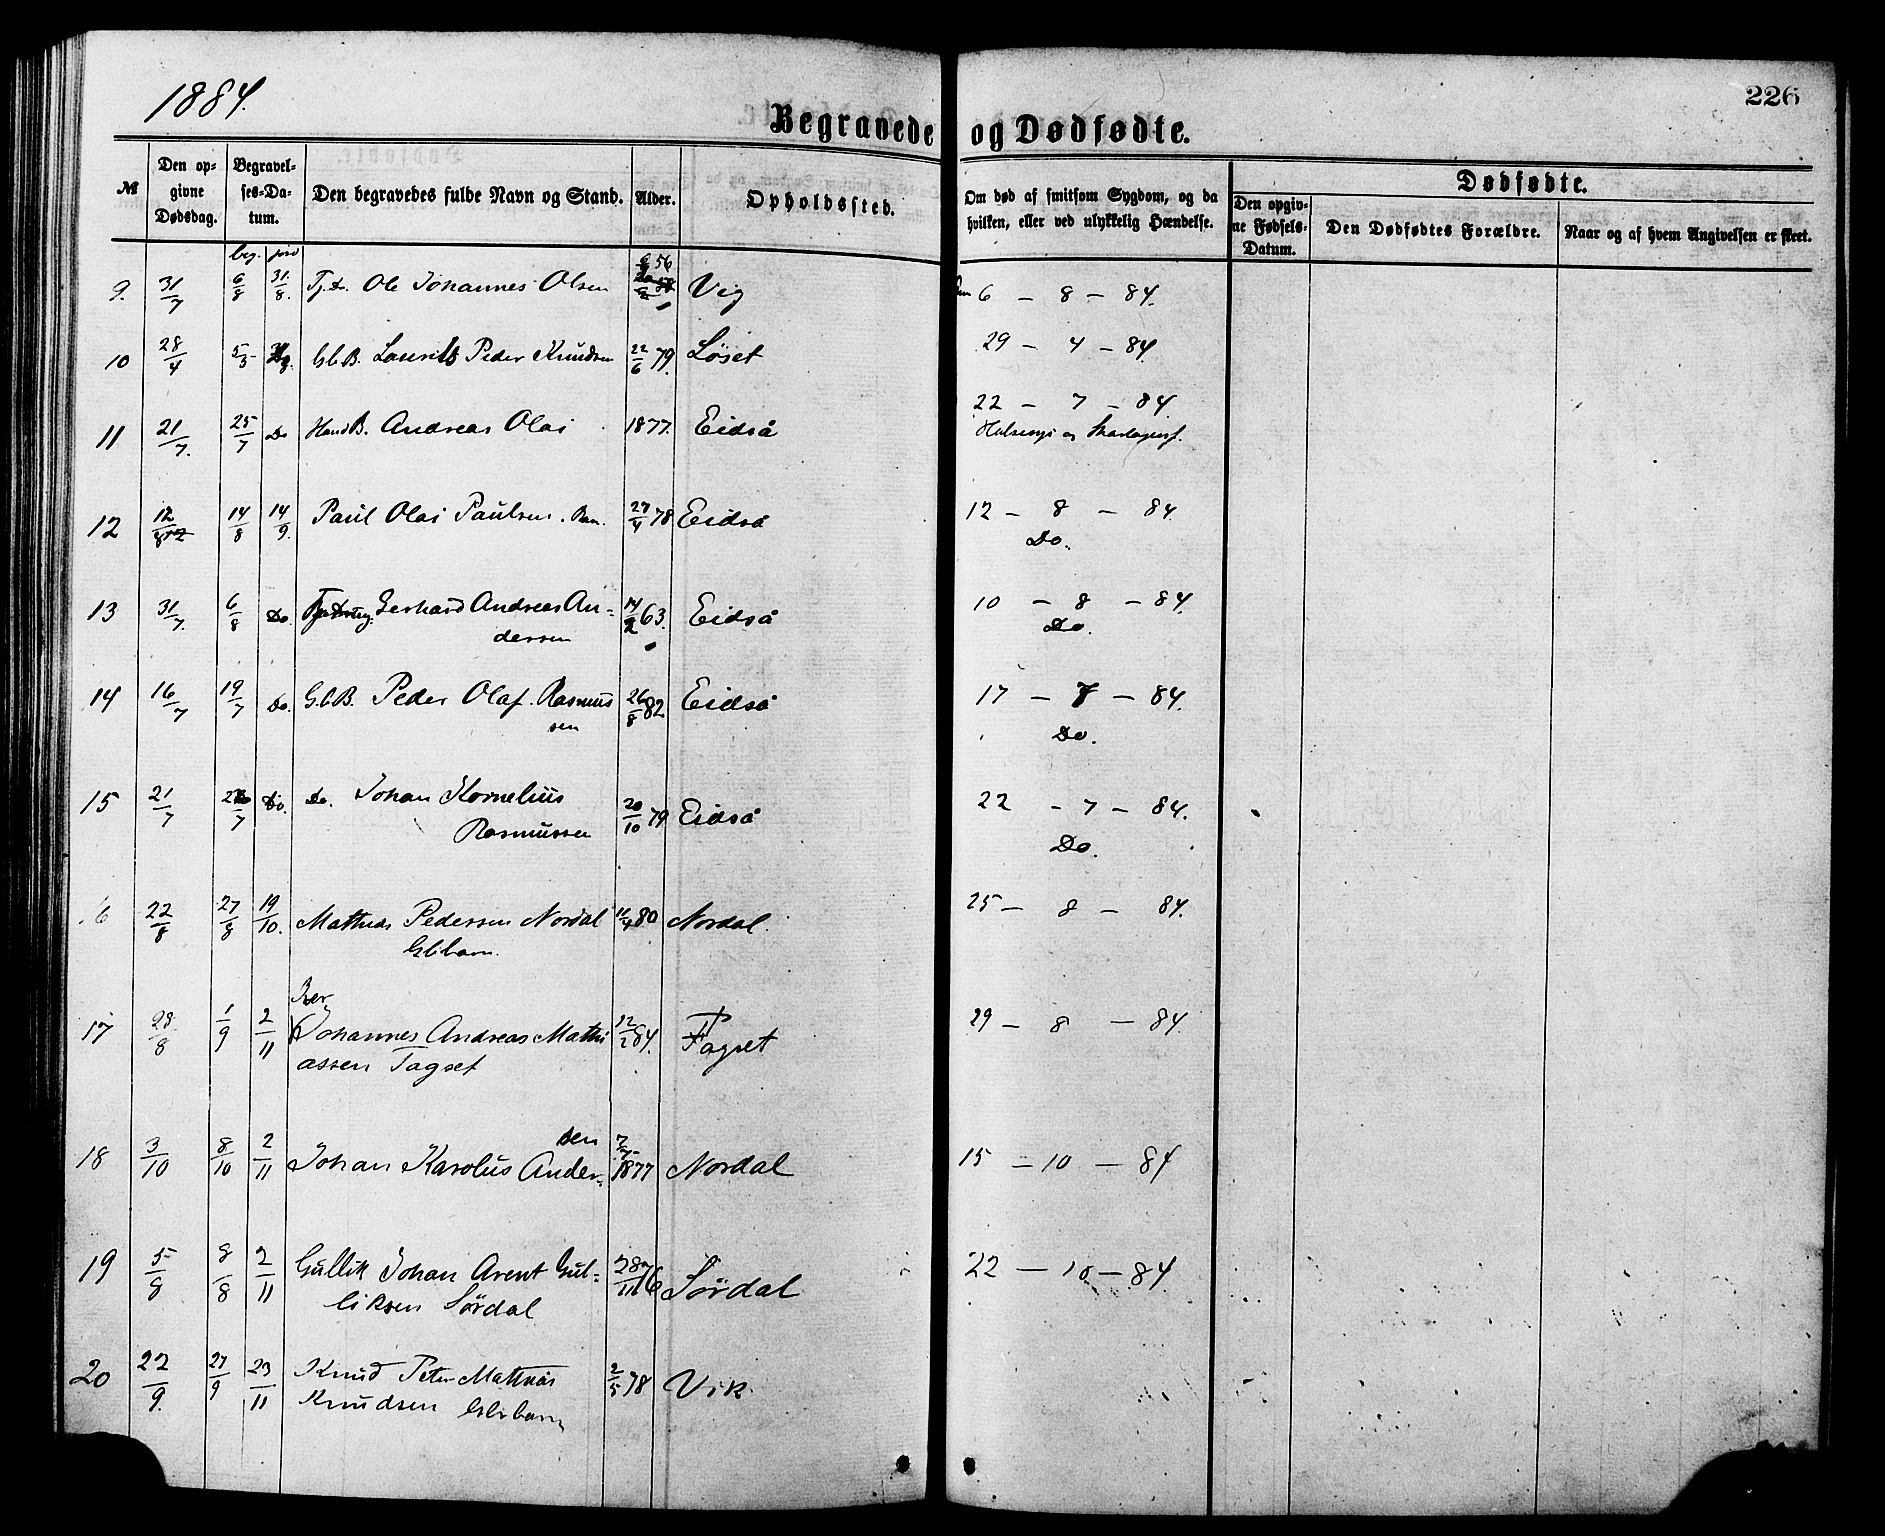 1884.
226
Begravede og Dødfødte.
№ Den opgivne Dødsdag. Begravelses-Datum. Den begravedes fulde Navn og Stand. Alder. Opholdssted. Om død af smitsom Sygdom, og da hvilken, eller ved ulykkelig Hændelse. Dødfødte.
Den opgivne Fødsels-Datum. Den Dødfødtes Forældre. Naar og af hvem Angivelsen er skeet.
beg. jord
9. 31/7 6/8 31/8. Ole Johannes Olsen 56 Vig 6 - 8 - 84.
10 28/4 5/5 G.b.B. Laurits Peder Knudsen 22/6 79. Løset 29 - 4 - 84.
11 21/7. 25/7 Do Andreas Olai 1877. Eidså 22 - 7 - 84.
12 12/8 14/8 14/9. Paul Olai Paulsen. 27/4 78 Eidså 12 - 8 - 84.
Do.
13 31/7. 6/8 Do. Gerhard Andreas An-
dersen 14/2 63. Eidså 10 - 8 - 84.
Do.
14 16/7 19/7 Do. G.b.B. Peder Olaf Rasmus
sen 26/8 82 Eidså 17 - 7 - 84.
Do.
15 21/7 Do. Do. Johan Kornelius
Rasmussen 20/10 79 Eidså 22 - 7 - 84.
Do.
16 22/8 27/8 19/10. Mathias Pedersen Nordal 80 Nordal. 25 - 8 - 84.
Gbbarn.
17 28/8 1/9 2/11 Johannes Andreas Mathi
assen Fagset 12/2 84. Fagset 29 - 8 - 84.
sen
18 3/10 8/10 2/11 Johan Karolus Ander- 1877 Nordal 15 - 10 - 84
19 5/8 8/8 2/11 Gullik Johan Arent Gul-
liksen Sørdal 28/11 76 Sørdal 22 - 10 - 84.
20 22/9. 27/9 23/11 Knud Peter Mathias
Knudsen Gbbarn 2/5 78 Vik.